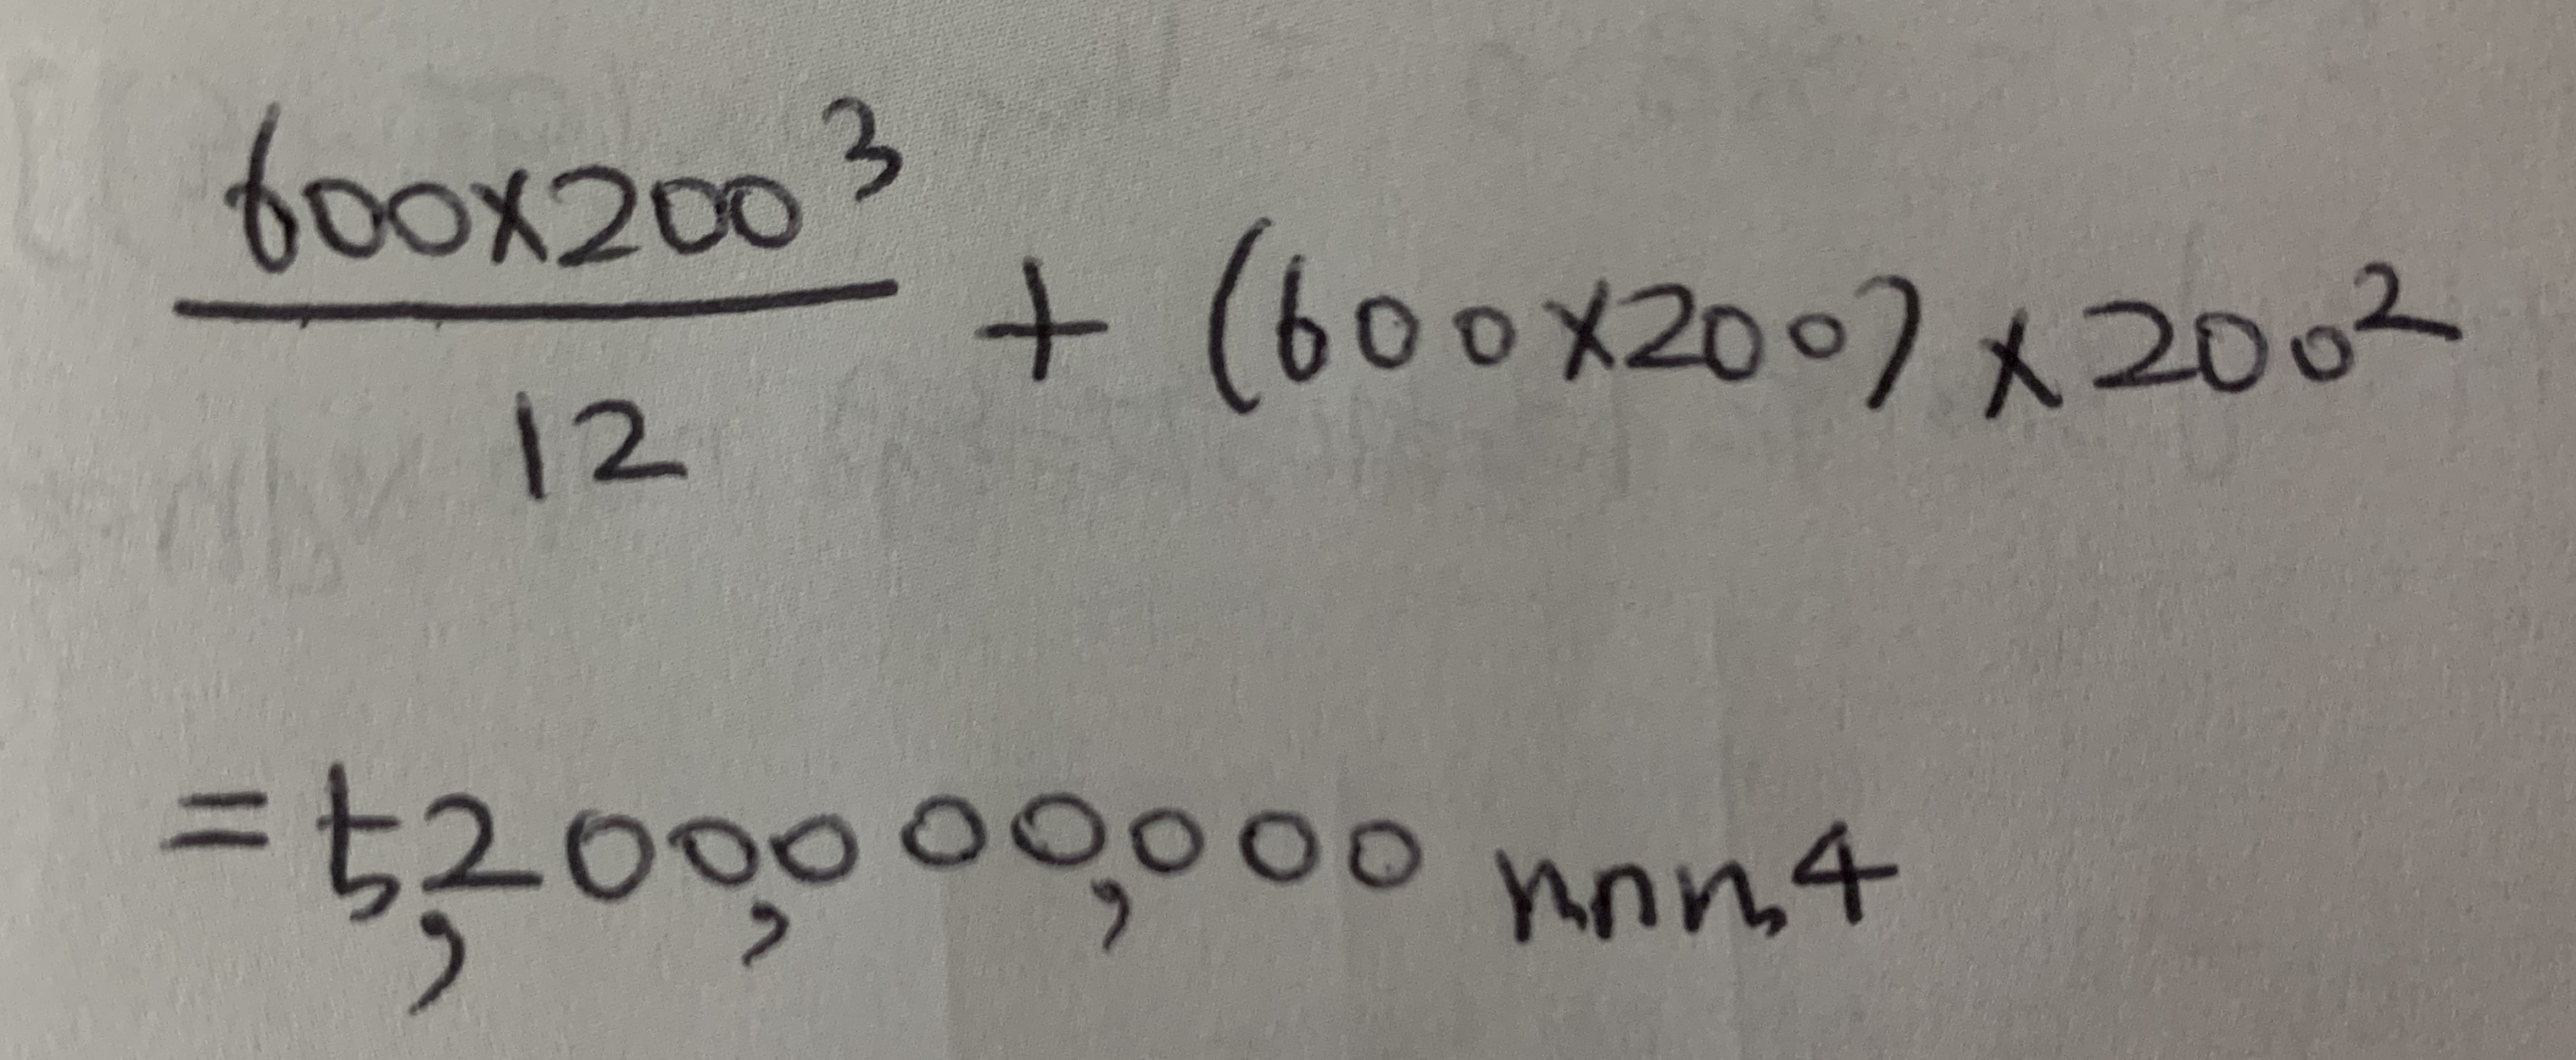 600×200³
―――― + (600×200)×200²
12
=5,200,000,000 mm4